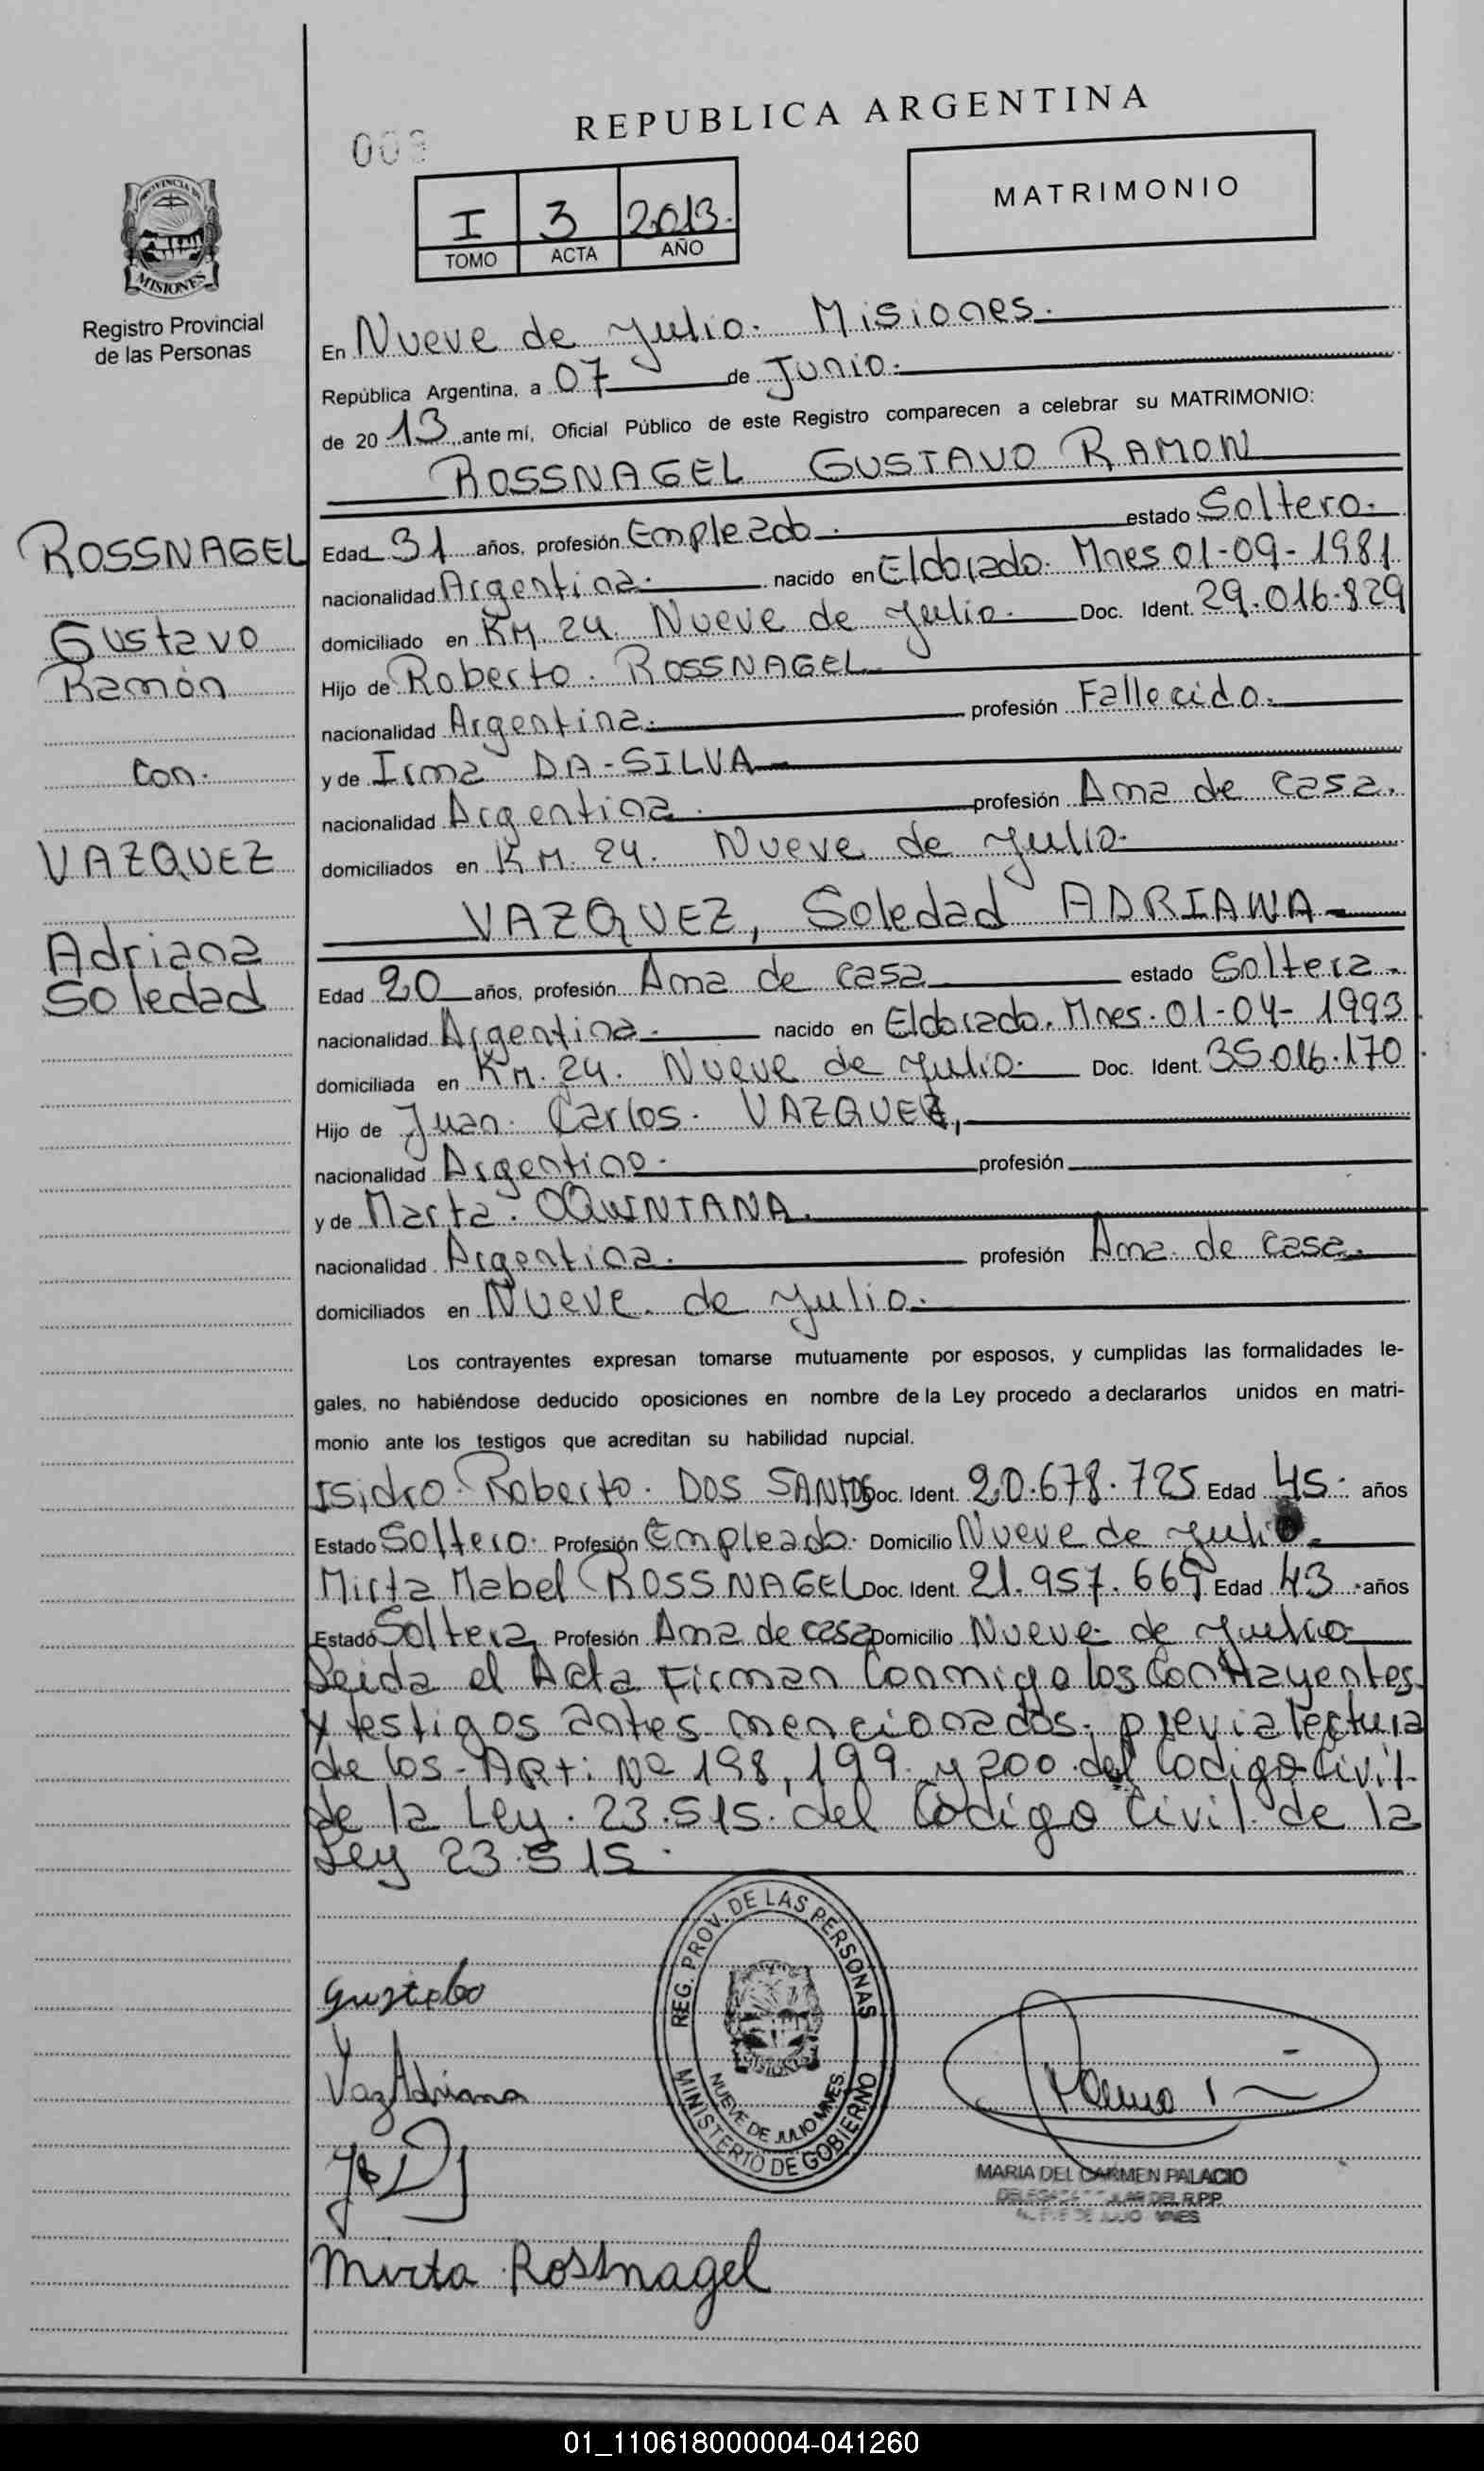 REPUBLICA ARGENTINA
003
MATRIMONIO
I 3 2013.
TOMO ACTA AÑO
PROVINCIA DE
MISIONES
Registro Provincial
de las Personas
En Nueve de Julio. Misiones.
República Argentina, a 07 de Junio.
de 20 13 ante mí, Oficial Público de este Registro comparecen a celebrar su MATRIMONIO:
ROSSNAGEL GUSTAVO RAMON
ROSSNAGEL
Gustavo
Ramón
con.
VAZQUEZ
Adriana
Soledad
Edad 31 años, profesión Empleado. estado Soltero.
nacionalidad Argentina. nacido en Eldorado. Mnes 01-09-1981
domiciliado en KM. 24. Nueve de Julio. Doc. Ident. 29.016.829
Hijo de Roberto. ROSSNAGEL
nacionalidad Argentina. profesión Fallecido.
y de Irma DA-SILVA
nacionalidad Argentina. profesión Ama de casa.
domiciliados en KM. 24. Nueve de Julio.
VAZQUEZ, Soledad ADRIANA
Edad 20 años, profesión Ama de casa estado Soltera.
nacionalidad Argentina. nacido en Eldorado. Mnes. 01-04-1993
domiciliada en KM. 24. Nueve de Julio. Doc. Ident. 35.016.170
Hijo de Juan. Carlos. VAZQUEZ,
nacionalidad Argentino. profesión
y de Marta. OQUINTANA.
nacionalidad Argentina. profesión Ama de casa.
domiciliados en Nueve de Julio.
Los contrayentes expresan tomarse mutuamente por esposos, y cumplidas las formalidades le-
gales, no habiéndose deducido oposiciones en nombre de la Ley procedo a declararlos unidos en matri-
monio ante los testigos que acreditan su habilidad nupcial.
Isidro Roberto. DOS SANTOS Doc. Ident. 20.678.725 Edad 45. años
Estado Soltero. Profesión Empleado. Domicilio Nueve de Julio.
Mirta Mabel ROSSNAGEL Doc. Ident. 21.957.669 Edad 43 años
Estado Soltera Profesión Ama de casa Domicilio Nueve de Julio
Leida el Acta Firman Conmigo los Contrayentes
y testigos antes mencionados. previa lectura
de los - ARt. Nº 198, 199. y 200. del Codigo Civil.
de la Ley. 23.515. del Codigo Civil de la
Ley 23.515.
Gustabo
Vaz Adriana
REG. PROV. DE LAS PERSONAS
MISIONES
NUEVE DE JULIO MNES.
MINISTERIO DE GOBIERNO
MARIA DEL CARMEN PALACIO
DELEGADA TITULAR DEL R.P.P.
NUEVE DE JULIO MNES
Mirta Rossnagel
01_110618000004-041260